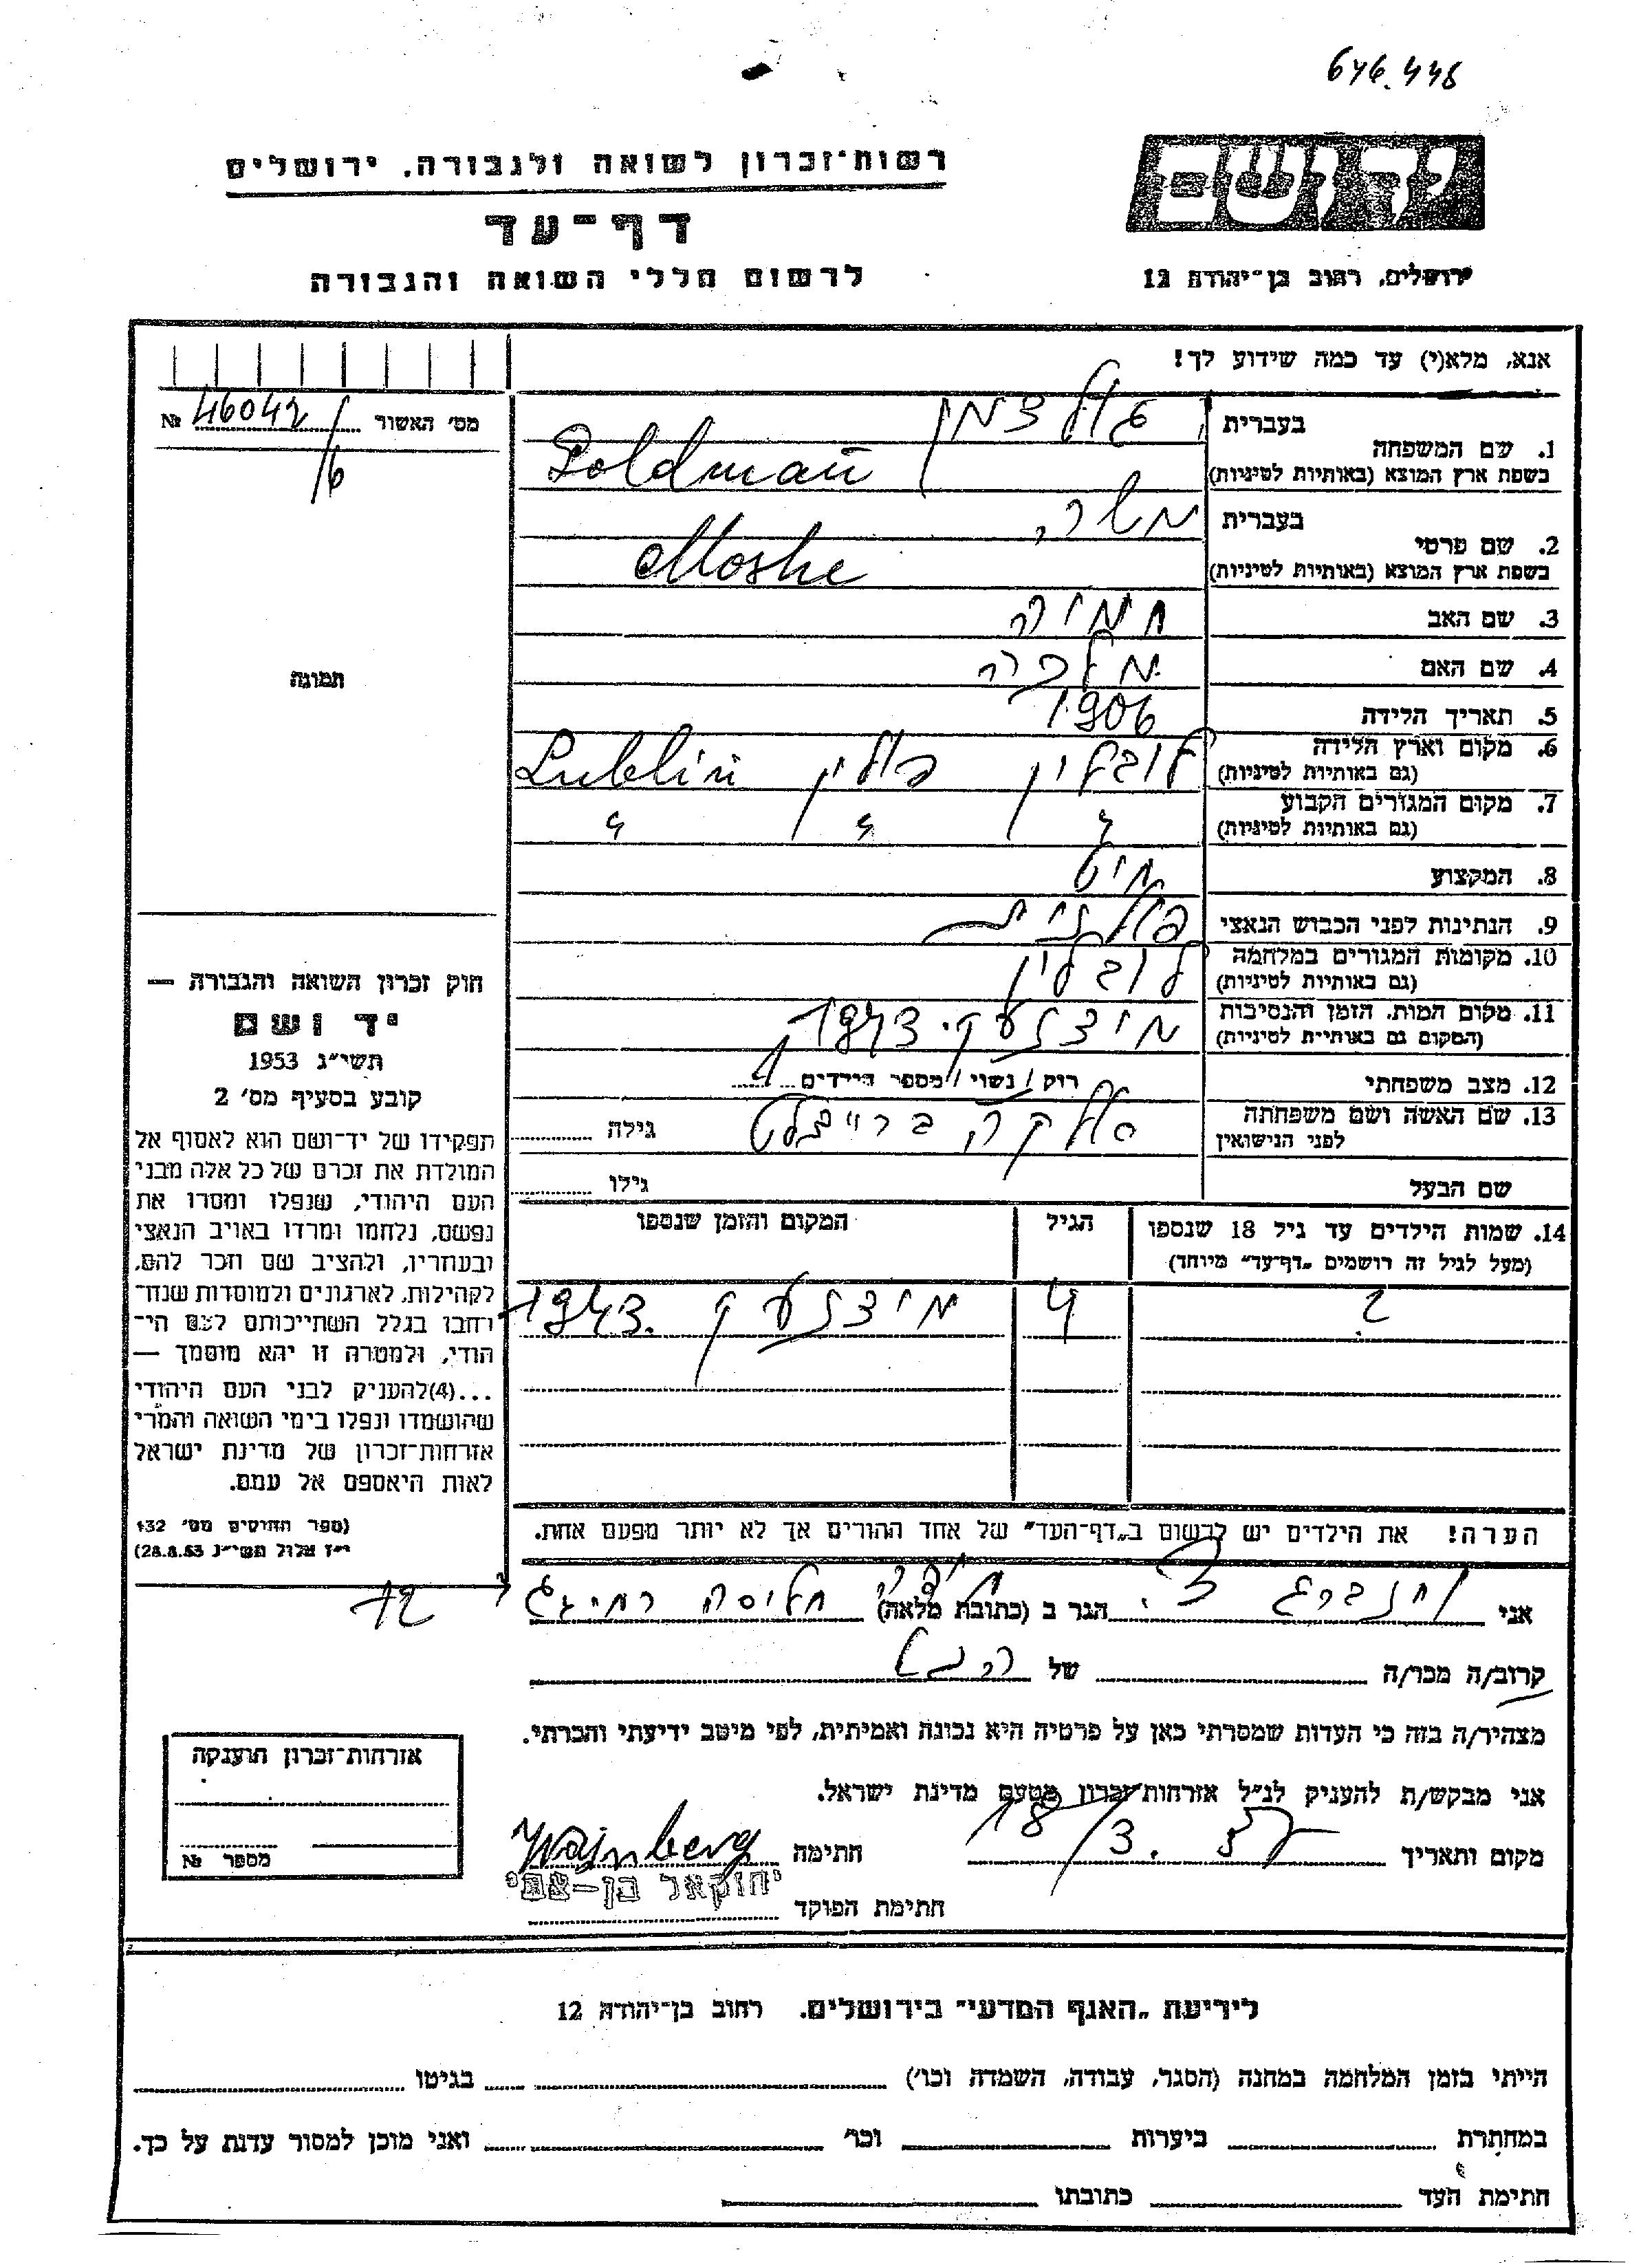 676.448
רשות־זכרון לשואה ולגבורה, ירושלים
דף־עד
לרשום חללי השואה והגבורה
ירושלים, רחוב בן־יהודה 12
אנא, מלא(י) עד כמה שידוע לך!
מס׳ האשור 46042 №
/6
בעברית
1. שם המשפחה
בשפת ארץ המוצא (באותיות לטיניות) Goldman
בעברית משה
2. שם פרטי
בשפת ארץ המוצא (באותיות לטיניות) Moshe
3. שם האב חמיה
4. שם האם מלכה
5. תאריך הלידה 1906
6. מקום וארץ הלידה לובלין פולין Lublin
(גם באותיות לטיניות)
7. מקום המגורים הקבוע
(גם באותיות לטיניות)
8. המקצוע חיט
9. הנתינות לפני הכבוש הנאצי פולנית
10. מקומות המגורים במלחמה לובלין
(גם באותיות לטיניות)
11. מקום המות, הזמן והנסיבות 1943
(המקום גם באותיות לטיניות)
12. מצב משפחתי רוק / נשוי / מספר הילדים 1
13. שם האשה ושם משפחתה גילה
לפני הנישואין
שם הבעל גילו
14. שמות הילדים עד גיל 18 שנספו הגיל המקום והזמן שנספו
(מעל לגיל זה רושמים „דף־עד” מיוחד)
? 4 1943
הערה! את הילדים יש לרשום ב„דף־העד” של אחד ההורים אך לא יותר מפעם אחת.
תמונה
חוק זכרון השואה והגבורה —
יד ושם
תשי״ג 1953
קובע בסעיף מס׳ 2
תפקידו של יד־ושם הוא לאסוף אל
המולדת את זכרם של כל אלה מבני
העם היהודי, שנפלו ומסרו את
נפשם, נלחמו ומרדו באויב הנאצי
ובעוזריו, ולהציב שם וזכר להם,
לקהילות, לארגונים ולמוסדות שנח־
רבו בגלל השתייכותם לעם הי־
הודי, ולמטרה זו יהא מוסמך —
...(4)להעניק לבני העם היהודי
שהושמדו ונפלו בימי השואה והמרי
אזרחות־זכרון של מדינת ישראל
לאות היאספם אל עמם.
(ספר החוקים מס׳ 132
י״ז אלול תשי״ג 28.8.53)
אני הגר ב (כתובת מלאה) חיפה חליסה
קרוב/ה מכר/ה של
מצהיר/ה בזה כי העדות שמסרתי כאן על פרטיה היא נכונה ואמיתית, לפי מיטב ידיעתי והכרתי.
אני מבקש/ת להעניק לנ״ל אזרחות־זכרון מטעם מדינת ישראל.
מקום ותאריך 18/3. 57 חתימה Wajnberg
חתימת הפוקד
אזרחות־זכרון הוענקה
מספר №
לידיעת „האגף המדעי” בירושלים. רחוב בן־יהודה 12
הייתי בזמן המלחמה במחנה (הסגר, עבודה, השמדה וכו׳) בגיטו
במחתרת ביערות וכו׳ ואני מוכן למסור עדות על כך.
חתימת העד כתובתו